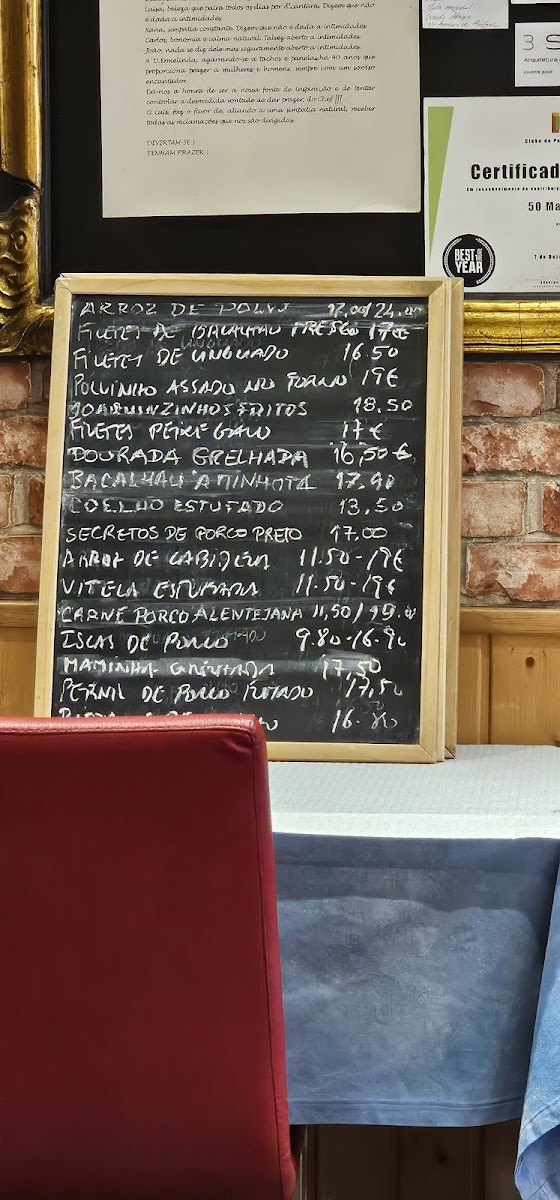 Luisa, beleza que paira todos os dias por Alcantara. Dizem que não
é dada a intimidades.
Xana, simpatia constante. Dizem que não é dada a intimidades.
Carlos, bonomia e calma natural. Talvez aberto a intimidades.
João, nada se diz dele mas seguramente aberto a intimidades.
A D.Ermelinda, agarrando-se a tachos e panelas há 40 anos que
proporciona prazer a mulheres e homens, sempre com um sorriso
encantador.
Dá-nos a honra de ser a nossa fonte de inspiração e de tentar
controlar a desmedida vontade de dar prazer, do Chef !!!
O Luis, faz o favor de, aliando a uma simpatia natural, receber
todas as reclamações que nos são dirigidas.
DIVIRTAM-SE !
TENHAM PRAZER !
3 S
Arquitectura
Clube de
Certificad
Em reconhecimento do contributo
50 Ma
BEST OF THE YEAR
ARROZ DE POLVO
FILETES DE BACALHAU FRESCO 17€
FILETES DE LINGUADO 16.50
POLVINHO ASSADO NO FORNO 19€
JOAQUINZINHOS FRITOS 18.50
FILETES PEIXE GALO 17€
DOURADA GRELHADA 16,50€
BACALHAU À MINHOTA 17.90
COELHO ESTUFADO 13,50
SECRETOS DE PORCO PRETO 17,00
ARROZ DE CABIDELA 11.50-19€
VITELA ESTUFADA 11.50-19€
CARNE PORCO ALENTEJANA 11,50/19.
ISCAS DE PORCO 9.80-16.90
MAMINHA GRELHADA 17,50
PERNIL DE PORCO FUMADO 17,50
16.80